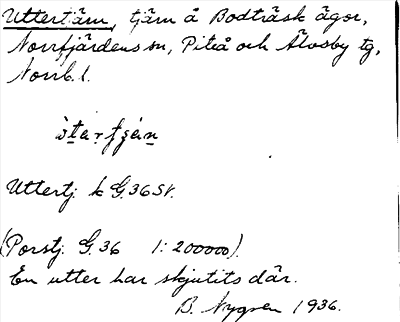 Uttertärn, tjärn å Bodträsk ägor,
Norrfjärdens sn, Piteå och Älvsby tg,
Norrb. l.
Uttertj. k G.36 SV.
(Porstj. G.36 1:200000).
En utter har skjutits där.
B. Nygren 1936.